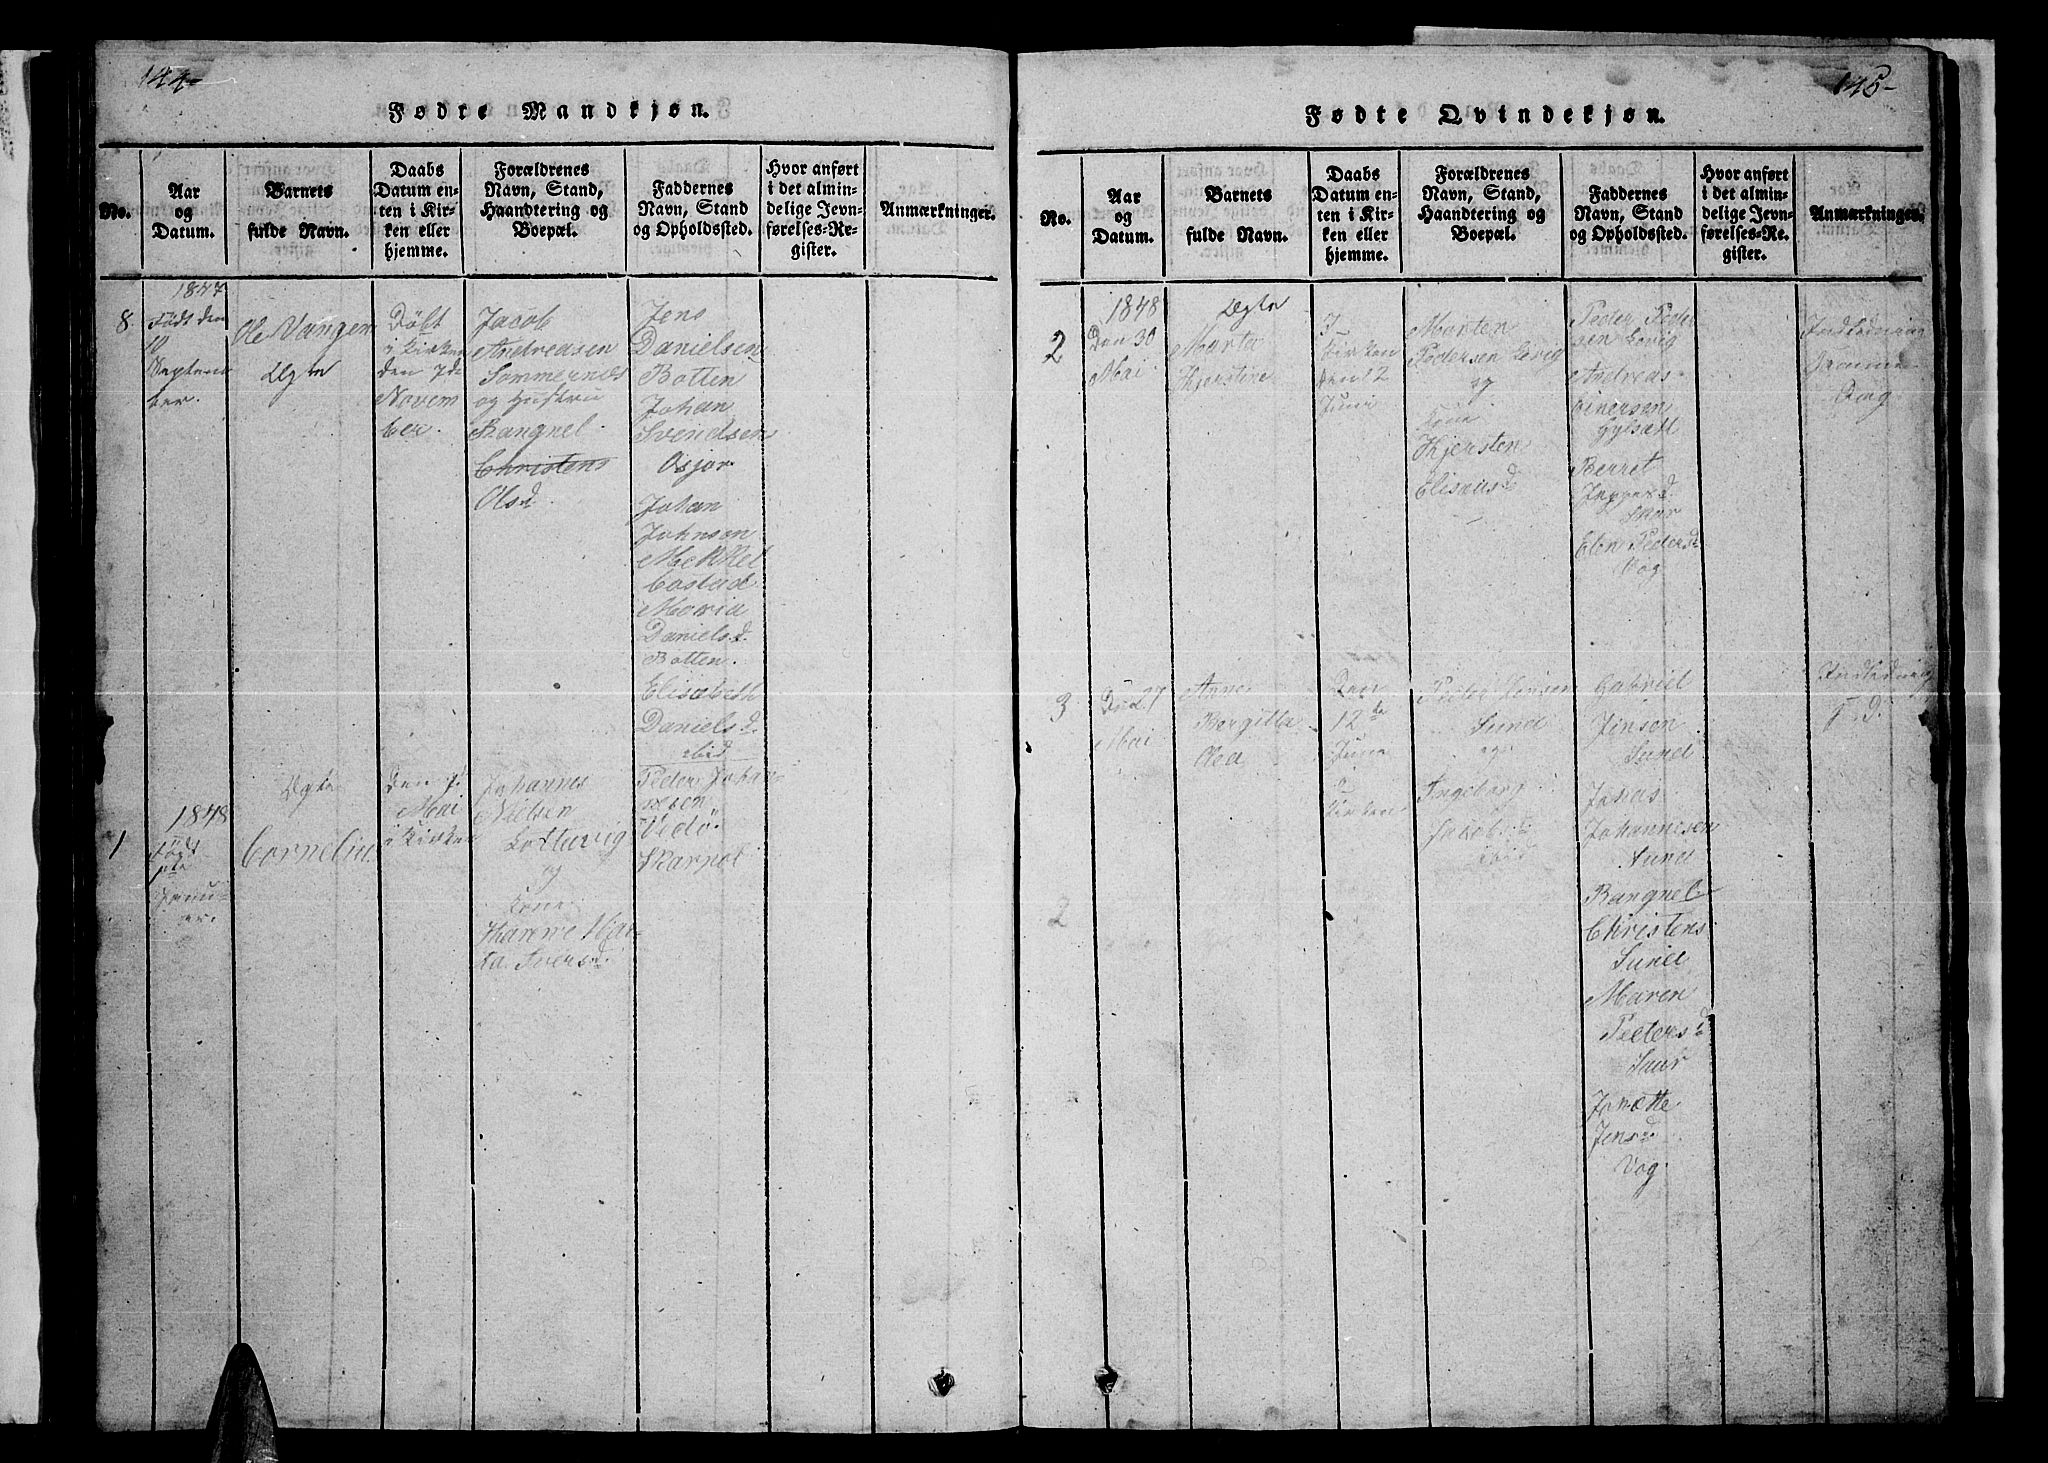 144
Fødre Mandkjøn.
No.
Aar
og
Datum.
Barnets
fulde Navn.
Daabs
Datum en-
ten i Kir-
ken eller
hjemme.
Forældrenes
Navn, Stand,
Haandtering og
Boepæl.
Faddernes
Navn, Stand
og Opholdssted.
Hvor anført
i det almin-
delige Jevn-
førelses-Re-
gister.
Anmærkninger.
8.
1847
Født den
10
Septem
ber.
Ole Vangen
Ægte
Döbt
i Kirken
den 7de
Novem
ber.
Jacob
Andreasen
Sommernæs
og Hustru
Rangnel
Christens
Olsd
Jens
Danielsen
Botten
Johan
Svendsen
Osjor
Johan
Johnson
Mekkel
Maria
Danielsd.
Botten.
Elisabeth
Danielsd.
ibid
1
1848
Født
1ste
Janu-
ar.
Ægte
Cornelius
den 7.
Mai
i Kirken
Johannes
Nielsen
og
Kone
Peder Johan
sen
Vedö
Skarpol
145
Fødte Qvindekjøn.
No.
Aar
og
Datum.
Barnets
fulde Navn.
Daabs
Datum en-
ten i Kir-
ken eller
hjemme.
Forældrenes
Navn, Stand,
Haandtering og
Boepæl.
Faddernes
Navn, Stand
og Opholdssted.
Hvor anført
i det almin-
delige Jevn-
førelses-Re-
gister.
Anmærkninger.
2
1848
Den 30
Mai
Ægte
Marta
Kjerstine
I
Kirken
den 12
Juni
Morten
Pedersen
og
Kone
Kjersten
Eliseusd
Peder Peder
sen
Andreas
Einersen
Berret
Jeppesd.
Skar
Elen Pedersd
Vog
Indledning
samme
Dag
3
Den 27
Mai
Anne
Bergitta
Olea
Den
12te
Juni
i
Kirken
Peder Hansen
Sund
og
Ingeborg
Jakobsd
ibid
Gabriel
Jensen
Sund
Johannesen
Sund
Rangnel
Christens
Sund
Maren
Pedersd
Jensd
Vog
Indledning
2